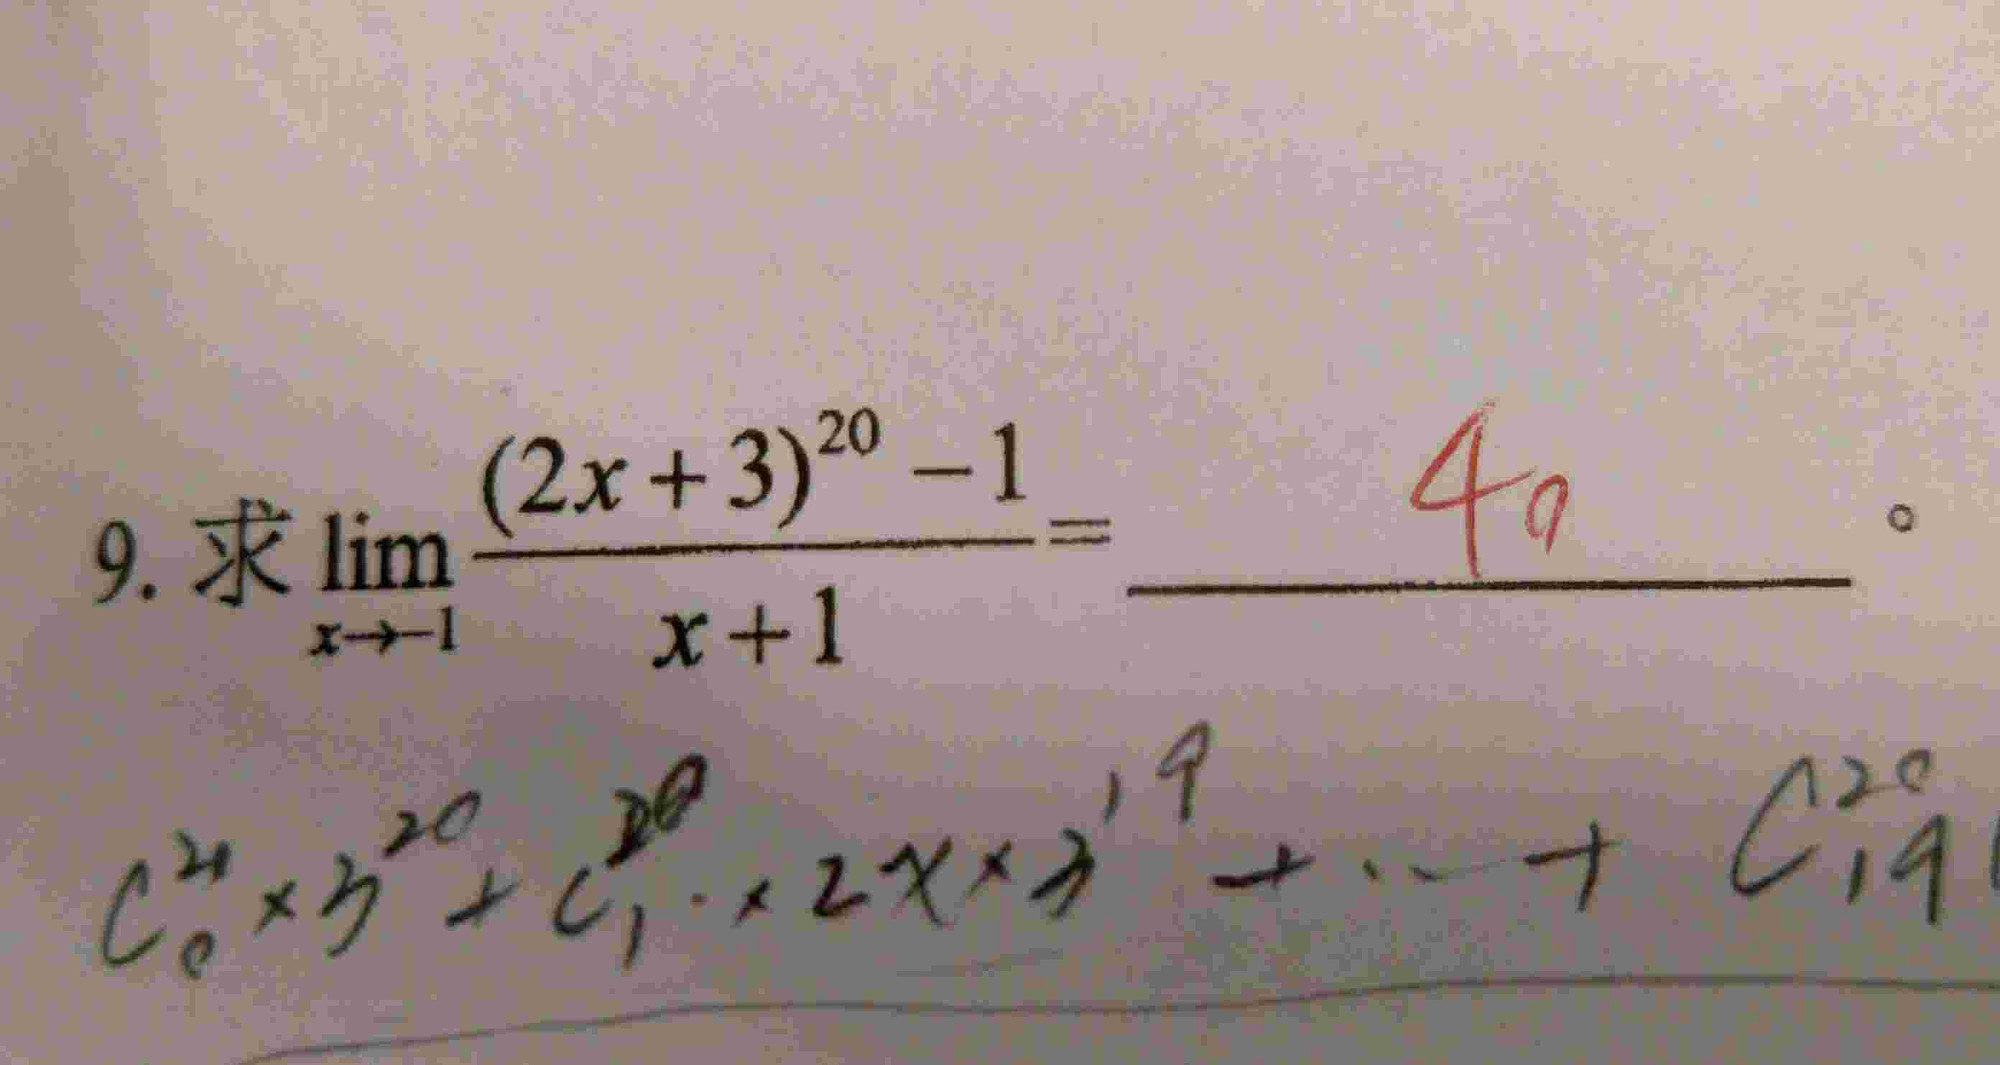 9. 求 lim x→-1 ((2x+3)^20 -1)/(x+1) = 40 。
C_0^20 × 3^20 + C_1^20 · × 2x × 3^19 + ... + C_19^20 (